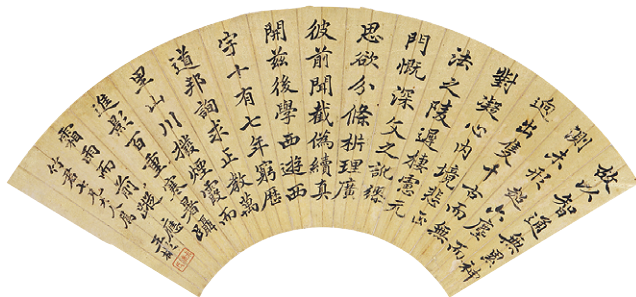 故以智通無累神
測未形超六塵而
迥出隻千古而無
對凝心內境悲正
法之陵遲棲慮元
門慨深文之訛繆
思欲分條析理廣
彼前聞截偽續真
開茲後學西遊西
宇十有七年窮歷
道邦詢求正教萬
里山川撥煙霞而
進影百重寒暑躡
霜雨而前蹤應
竹君七兄大人屬
王